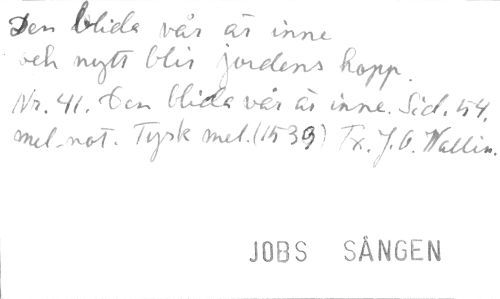 Den blida vår är inne
och nytt blir jordens hopp.
Nr. 41. Den blida vår är inne. Sid. 54.
mel-not. Tysk mel. (1539) Tx. J.O. Wallin.
JOBS SÅNGEN